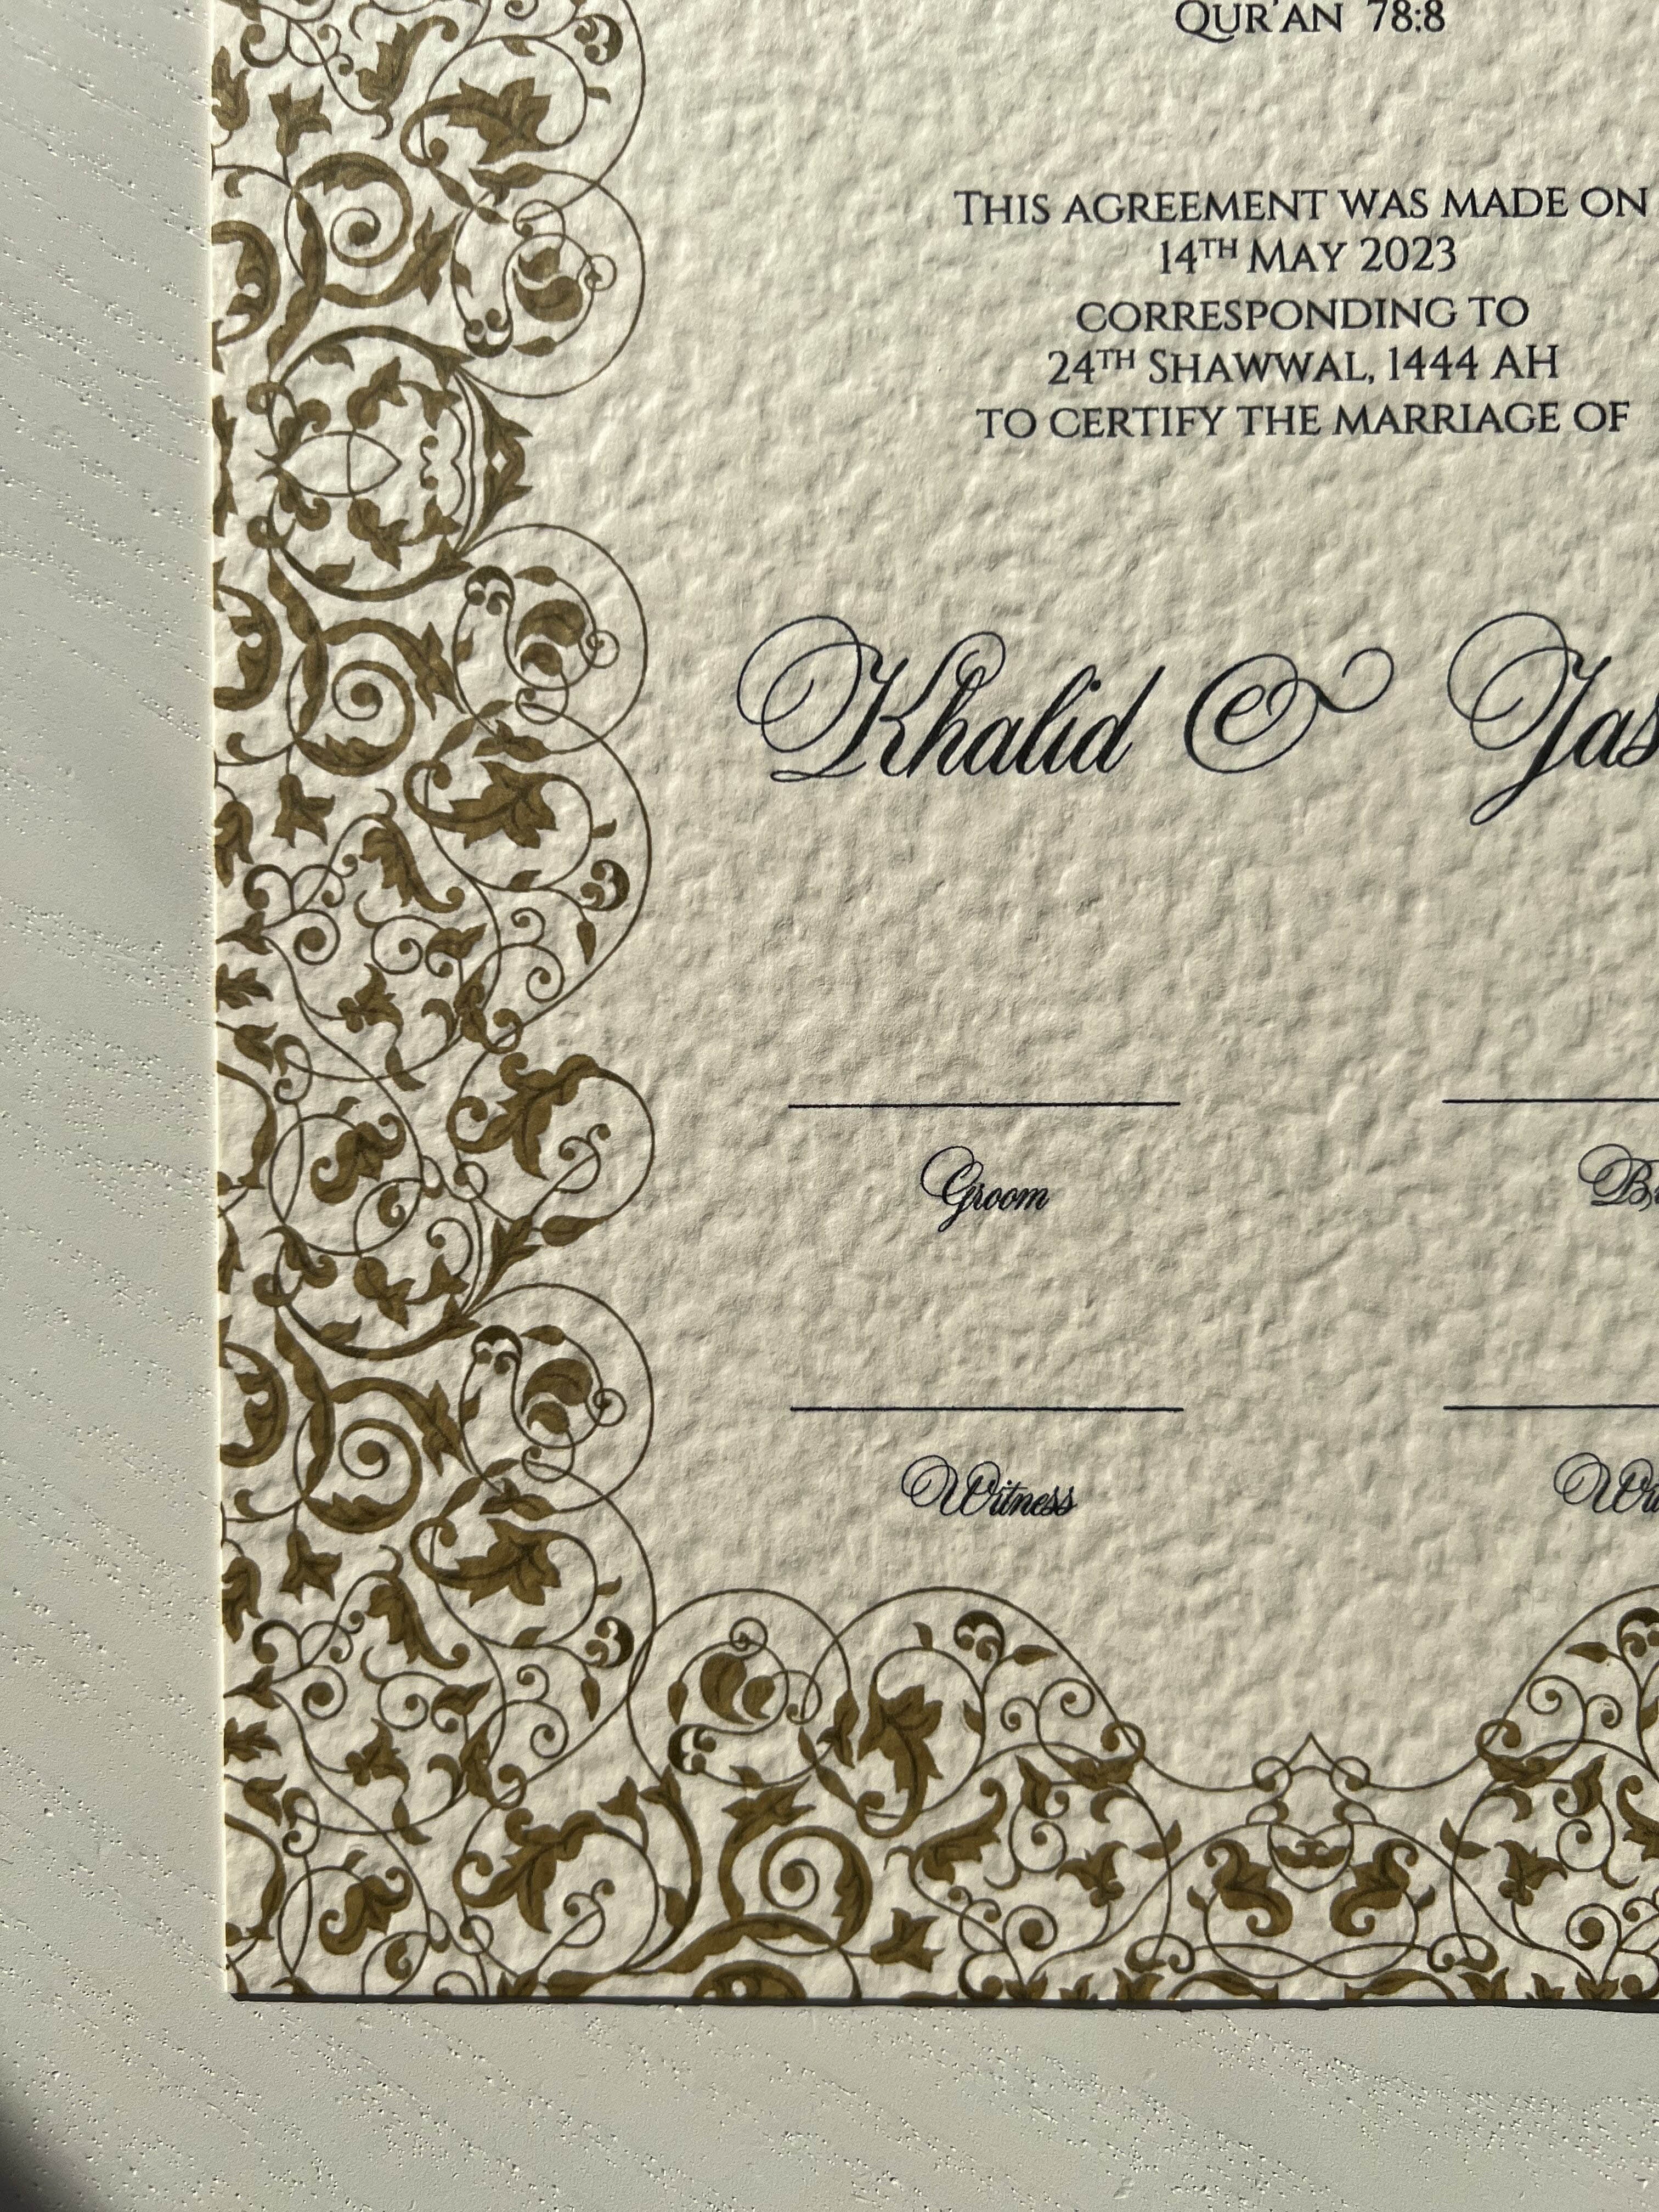 QUR'AN 78:8
THIS AGREEMENT WAS MADE ON
14TH MAY 2023
CORRESPONDING TO
24TH SHAWWAL, 1444 AH
TO CERTIFY THE MARRIAGE OF
Khalid & Jas
Groom
Witness